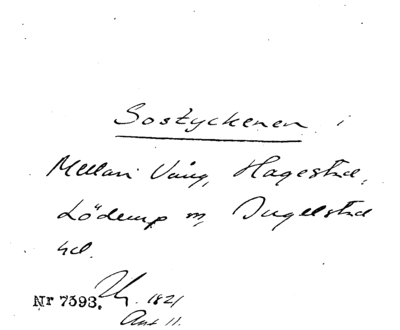 Sostyckenen i
Mellan Vång, Hagestad,
Löderup sn, Ingelstad
hd.
Nr 7393. 1821
Ant 11.